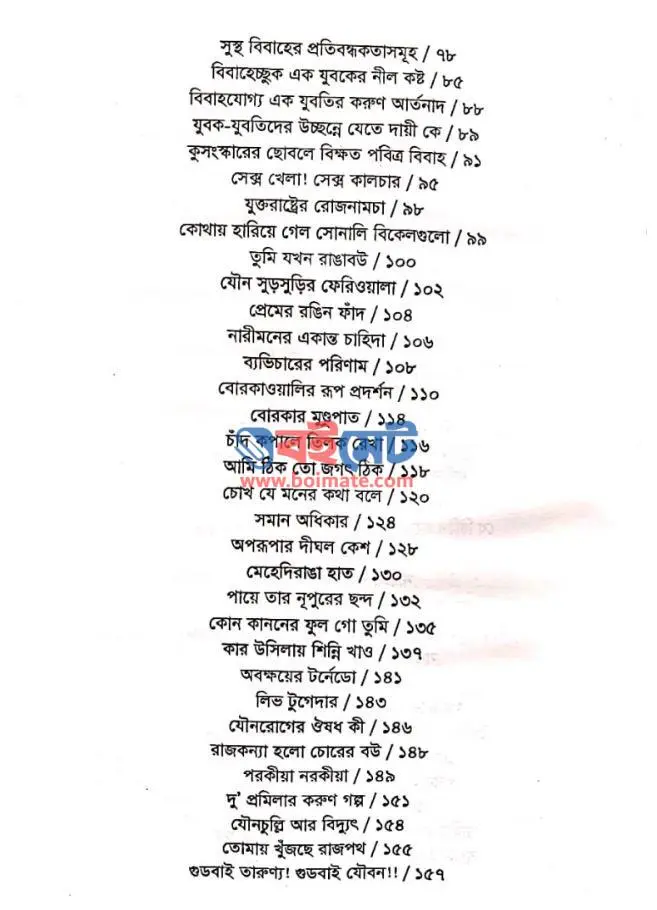 সুস্থ বিবাহের প্রতিবন্ধকতাসমূহ / ৭৮
বিবাহেচ্ছুক এক যুবকের নীল কষ্ট / ৮৫
বিবাহযোগ্য এক যুবতির করুণ আর্তনাদ / ৮৮
যুবক-যুবতিদের উচ্ছন্নে যেতে দায়ী কে / ৮৯
কুসংস্কারের ছোবলে বিক্ষত পবিত্র বিবাহ / ৯১
সেক্স খেলা! সেক্স কালচার / ৯৫
যুক্তরাষ্ট্রের রোজনামচা / ৯৮
কোথায় হারিয়ে গেল সোনালি বিকেলগুলো / ৯৯
তুমি যখন রাঙাবউ / ১০০
যৌন সুড়সুড়ির ফেরিওয়ালা / ১০২
প্রেমের রঙিন ফাঁদ / ১০৪
নারীমনের একান্ত চাহিদা / ১০৬
ব্যভিচারের পরিণাম / ১০৮
বোরকাওয়ালির রূপ প্রদর্শন / ১১০
বোরকার মুণ্ডুপাত / ১১৪
বইমেট
চাঁদ কপালে তিলক রেখা / ১১৬
আমি ঠিক তো জগৎ ঠিক / ১১৮
www.boimate.com
চোখ যে মনের কথা বলে / ১২০
সমান অধিকার / ১২৪
অপরূপার দীঘল কেশ / ১২৮
মেহেদিরাঙা হাত / ১৩০
পায়ে তার নূপুরের ছন্দ / ১৩২
কোন কাননের ফুল গো তুমি / ১৩৫
কার উসিলায় শিন্নি খাও / ১৩৭
অবক্ষয়ের টর্নেডো / ১৪১
লিভ টুগেদার / ১৪৩
যৌনরোগের ঔষধ কী / ১৪৬
রাজকন্যা হলো চোরের বউ / ১৪৮
পরকীয়া নরকীয়া / ১৪৯
দু' প্রমিলার করুণ গল্প / ১৫১
যৌনচুল্লি আর বিদ্যুৎ / ১৫৪
তোমায় খুঁজছে রাজপথ / ১৫৫
গুডবাই তারুণ্য! গুডবাই যৌবন!! / ১৫৭